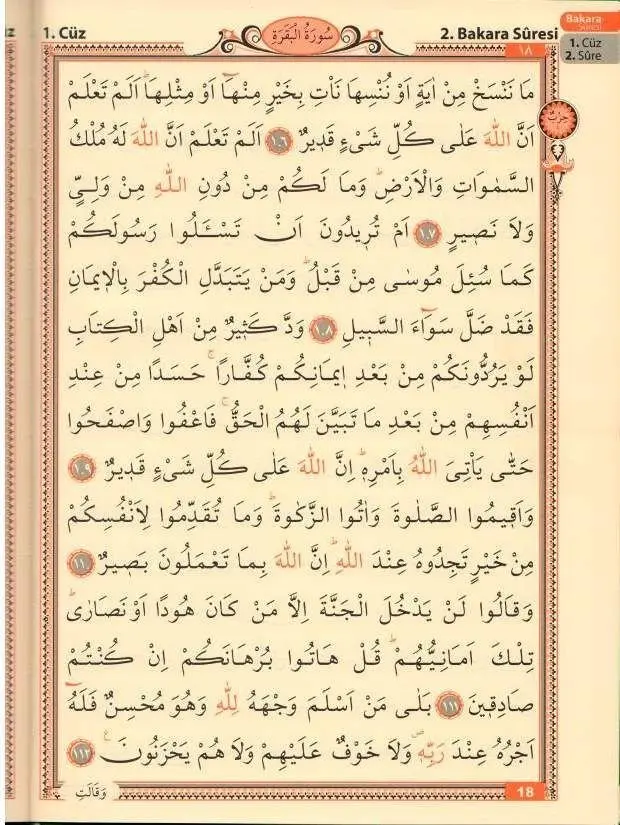 1. Cüz
سُورَةُ الْبَقَرَةِ
2. Bakara Sûresi
Bakara
Sûresi
1. Cüz
2. Sûre
١٨
مَا نَنْسَخْ مِنْ اٰيَةٍ اَوْ نُنْسِهَا نَأْتِ بِخَيْرٍ مِنْهَٓا اَوْ مِثْلِهَاۜ اَلَمْ تَعْلَمْ
اَنَّ اللّٰهَ عَلٰى كُلِّ شَيْءٍ قَد۪يرٌ ﴿١٠٦﴾ اَلَمْ تَعْلَمْ اَنَّ اللّٰهَ لَهُ مُلْكُ
السَّمٰوَاتِ وَالْاَرْضِۜ وَمَا لَكُمْ مِنْ دُونِ اللّٰهِ مِنْ وَلِيٍّ
وَلَا نَص۪يرٍ ﴿١٠٧﴾ اَمْ تُر۪يدُونَ اَنْ تَسْـَٔلُوا رَسُولَكُمْ
كَمَا سُئِلَ مُوسٰى مِنْ قَبْلُۜ وَمَنْ يَتَبَدَّلِ الْكُفْرَ بِالْا۪يمَانِ
فَقَدْ ضَلَّ سَوَٓاءَ السَّب۪يلِ ﴿١٠٨﴾ وَدَّ كَث۪يرٌ مِنْ اَهْلِ الْكِتَابِ
لَوْ يَرُدُّونَكُمْ مِنْ بَعْدِ ا۪يمَانِكُمْ كُفَّارًاۚ حَسَدًا مِنْ عِنْدِ
اَنْفُسِهِمْ مِنْ بَعْدِ مَا تَبَيَّنَ لَهُمُ الْحَقُّۚ فَاعْفُوا وَاصْفَحُوا
حَتّٰى يَأْتِيَ اللّٰهُ بِاَمْرِه۪ۜ اِنَّ اللّٰهَ عَلٰى كُلِّ شَيْءٍ قَد۪يرٌ ﴿١٠٩﴾
وَاَق۪يمُوا الصَّلٰوةَ وَاٰتُوا الزَّكٰوةَۜ وَمَا تُقَدِّمُوا لِاَنْفُسِكُمْ
مِنْ خَيْرٍ تَجِدُوهُ عِنْدَ اللّٰهِۜ اِنَّ اللّٰهَ بِمَا تَعْمَلُونَ بَص۪يرٌ ﴿١١٠﴾
وَقَالُوا لَنْ يَدْخُلَ الْجَنَّةَ اِلَّا مَنْ كَانَ هُودًا اَوْ نَصَارٰىۜ
تِلْكَ اَمَانِيُّهُمْۜ قُلْ هَاتُوا بُرْهَانَكُمْ اِنْ كُنْتُمْ
صَادِق۪ينَ ﴿١١١﴾ بَلٰى مَنْ اَسْلَمَ وَجْهَهُ لِلّٰهِ وَهُوَ مُحْسِنٌ فَلَهُٓ
اَجْرُهُ عِنْدَ رَبِّه۪ۖ وَلَا خَوْفٌ عَلَيْهِمْ وَلَا هُمْ يَحْزَنُونَ۟ ﴿١١٢﴾
وَقَالَتِ
18